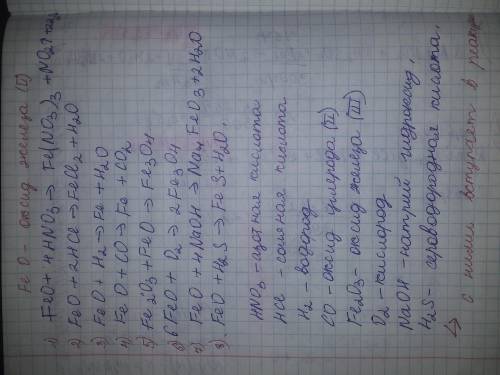 FeO - оксид железа (II)
1) FeO + 4HNO3 → Fe(NO3)3 + NO2↑ +
2) FeO + 2HCl → FeCl2 + H2O
3) FeO + H2 → Fe + H2O
4) FeO + CO → Fe + CO2
5) Fe2O3 + FeO → Fe3O4
6) 6FeO + O2 → 2Fe3O4
7) FeO + 4NaOH → Na4FeO3 + 2H2O
8) FeO + H2S → FeS + H2O.
HNO3 - азотная кислота
HCl - соляная кислота
H2 - водород
CO - оксид углерода (II)
Fe2O3 - оксид железа (III)
O2 - кислород
NaOH - натрий гидроксид,
H2S - сероводородная кислота.
↳ с ними вступает в реакции